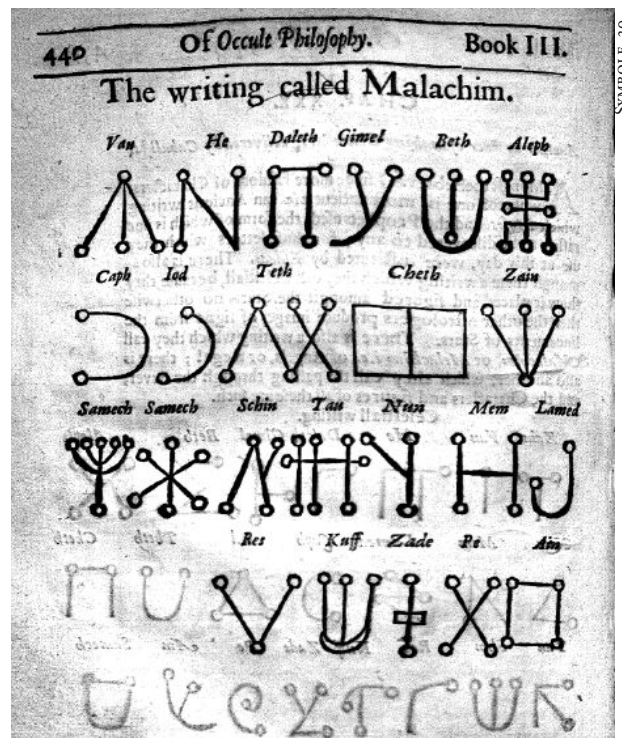 440 Of Occult Philoſophy. Book III.
The writing called Malachim.
Vau He Daleth Gimel Beth Aleph
Caph Iod Teth Cheth Zain
Samech Samech Schin Tau Nun Mem Lamed
Res Kuff Zade Pe Ain
SYMBOLE